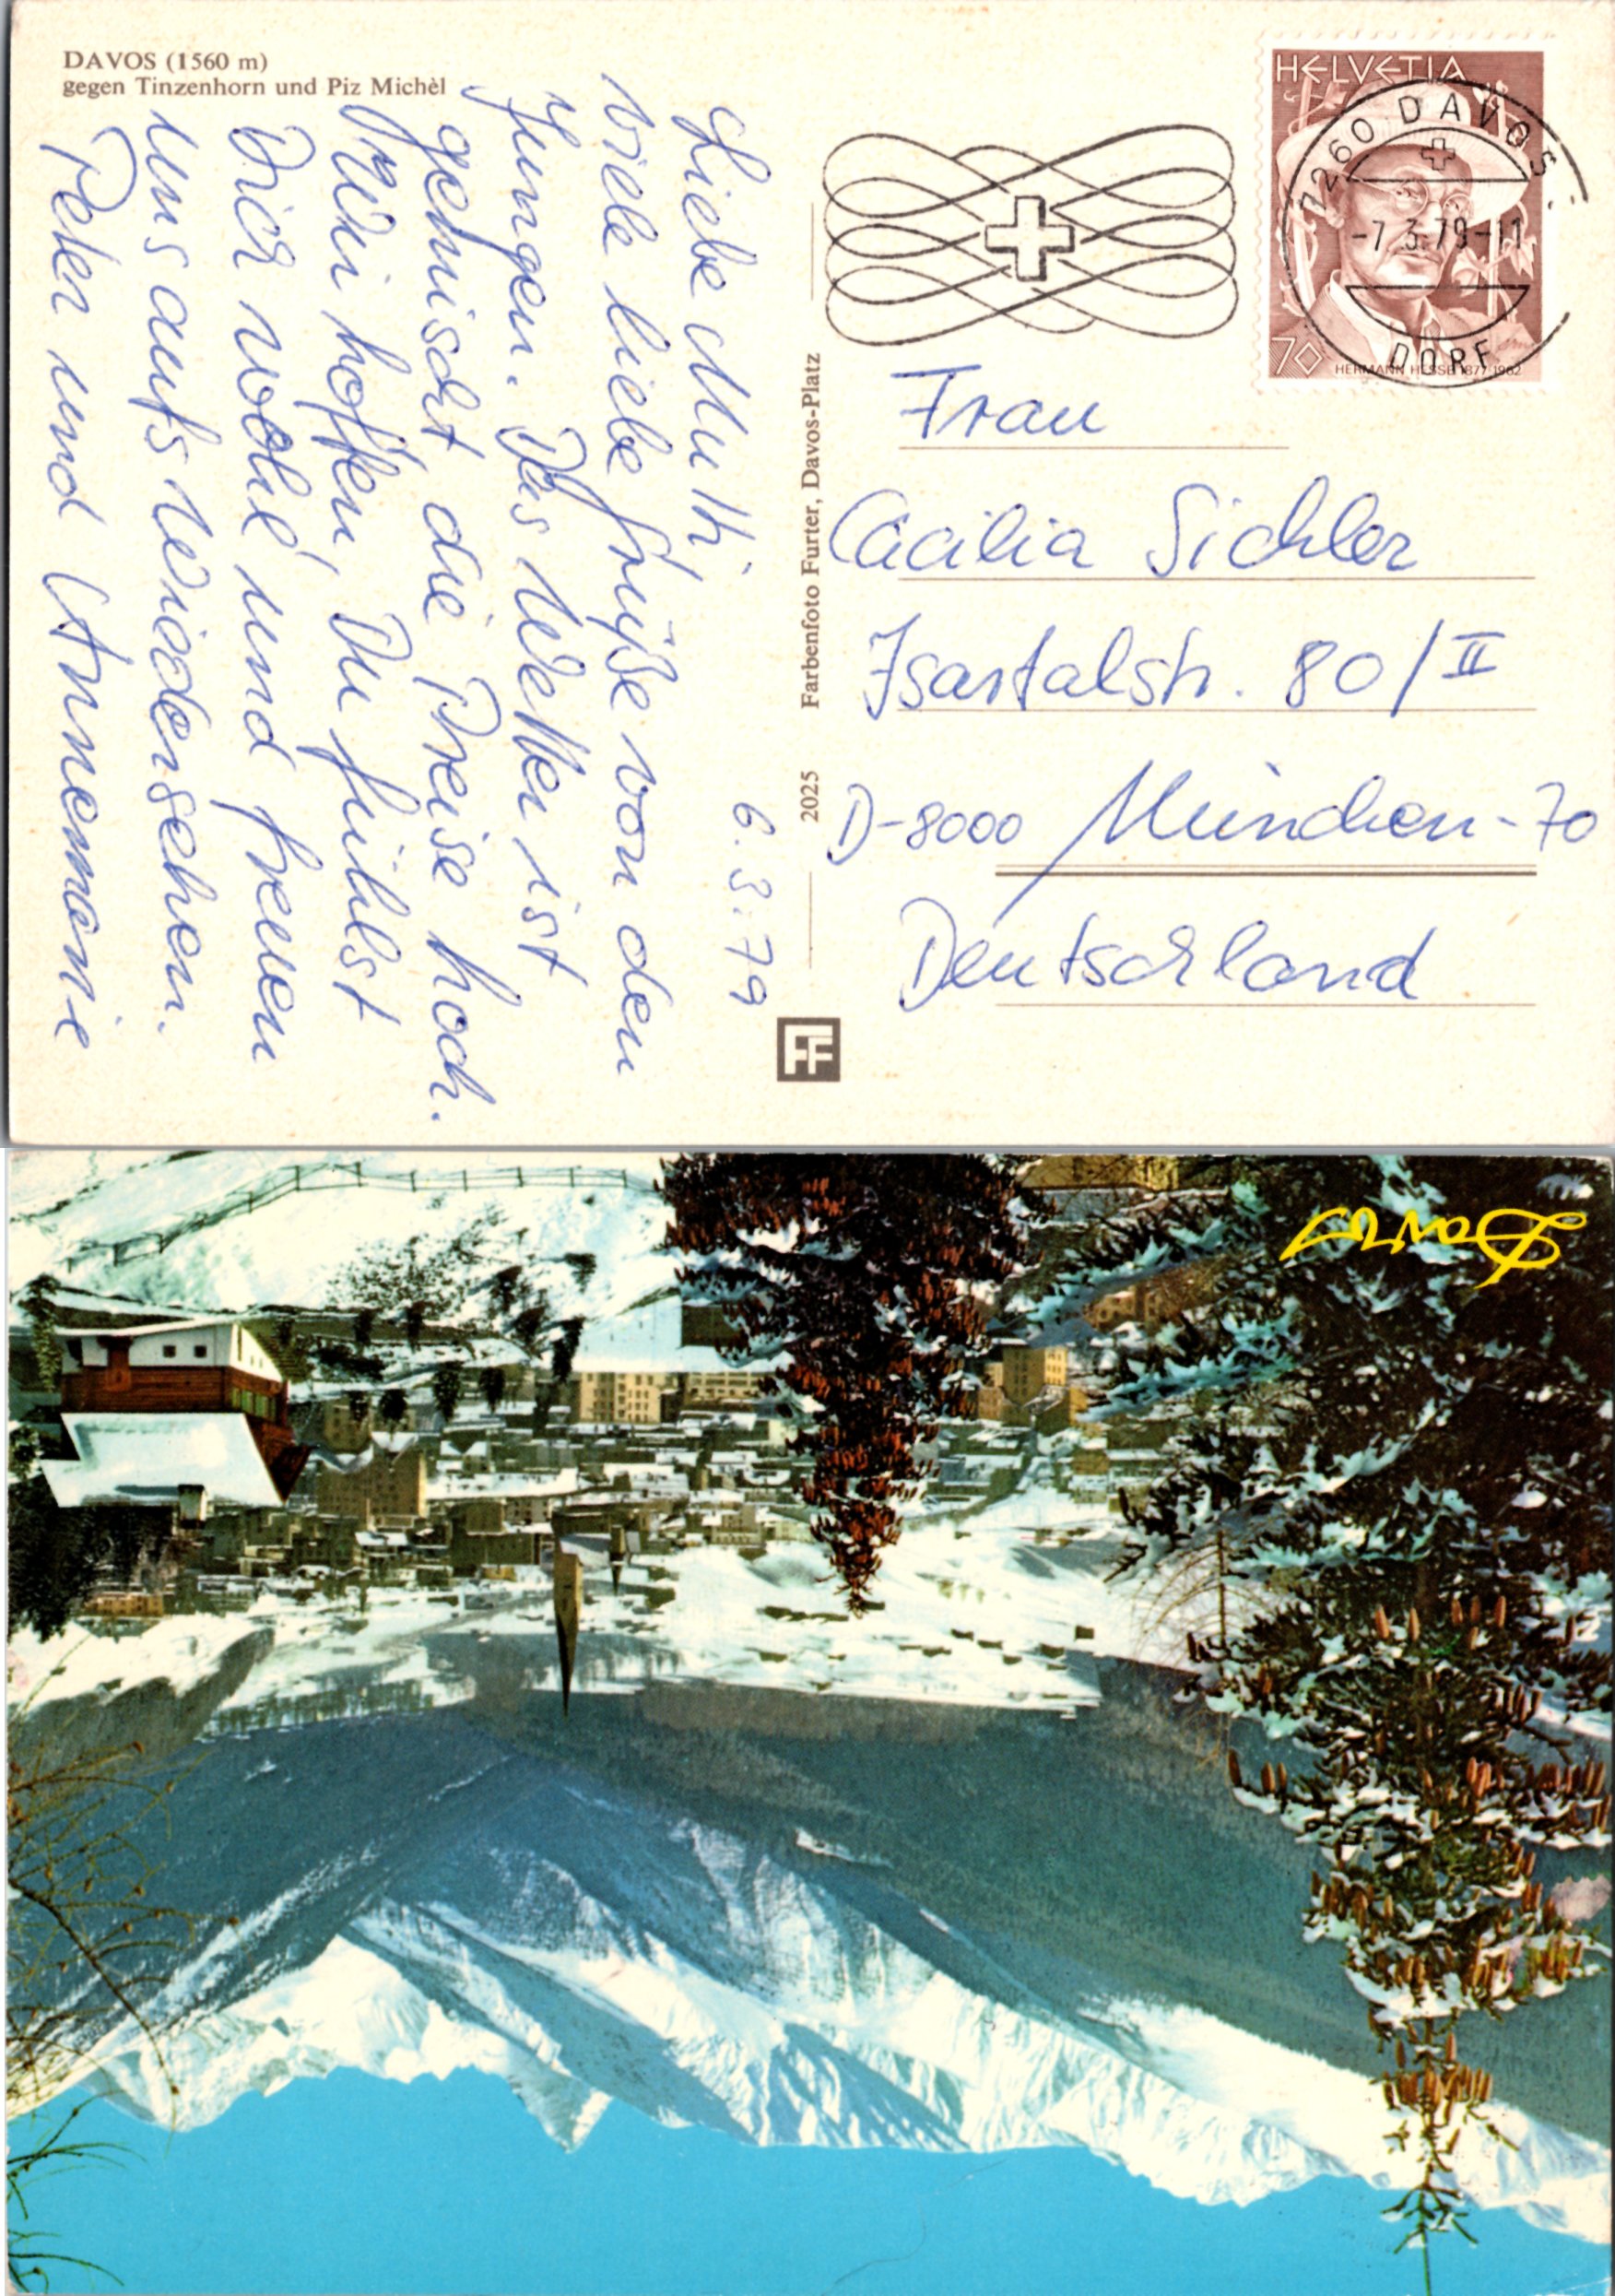 DAVOS (1560 m)
gegen Tinzenhorn und Piz Michèl
6.3.79
Liebe Mutti,
viele liebe Grüße von den
Jungen. Das Wetter ist
gemischt, die Preise hoch.
Wir hoffen, Du fühlst
Dich wohl und freuen
uns aufs Wiedersehen.
Peter und Annemarie
2025 Farbenfoto Furter, Davos-Platz
FF
HELVETIA
70
HERMANN HESSE 1877-1962
7260 DAVOS
-7.3.79-11
DORF
Frau
Cäcilia Sichler
Isartalstr. 80/II
D-8000 München-70
Deutschland
Davos